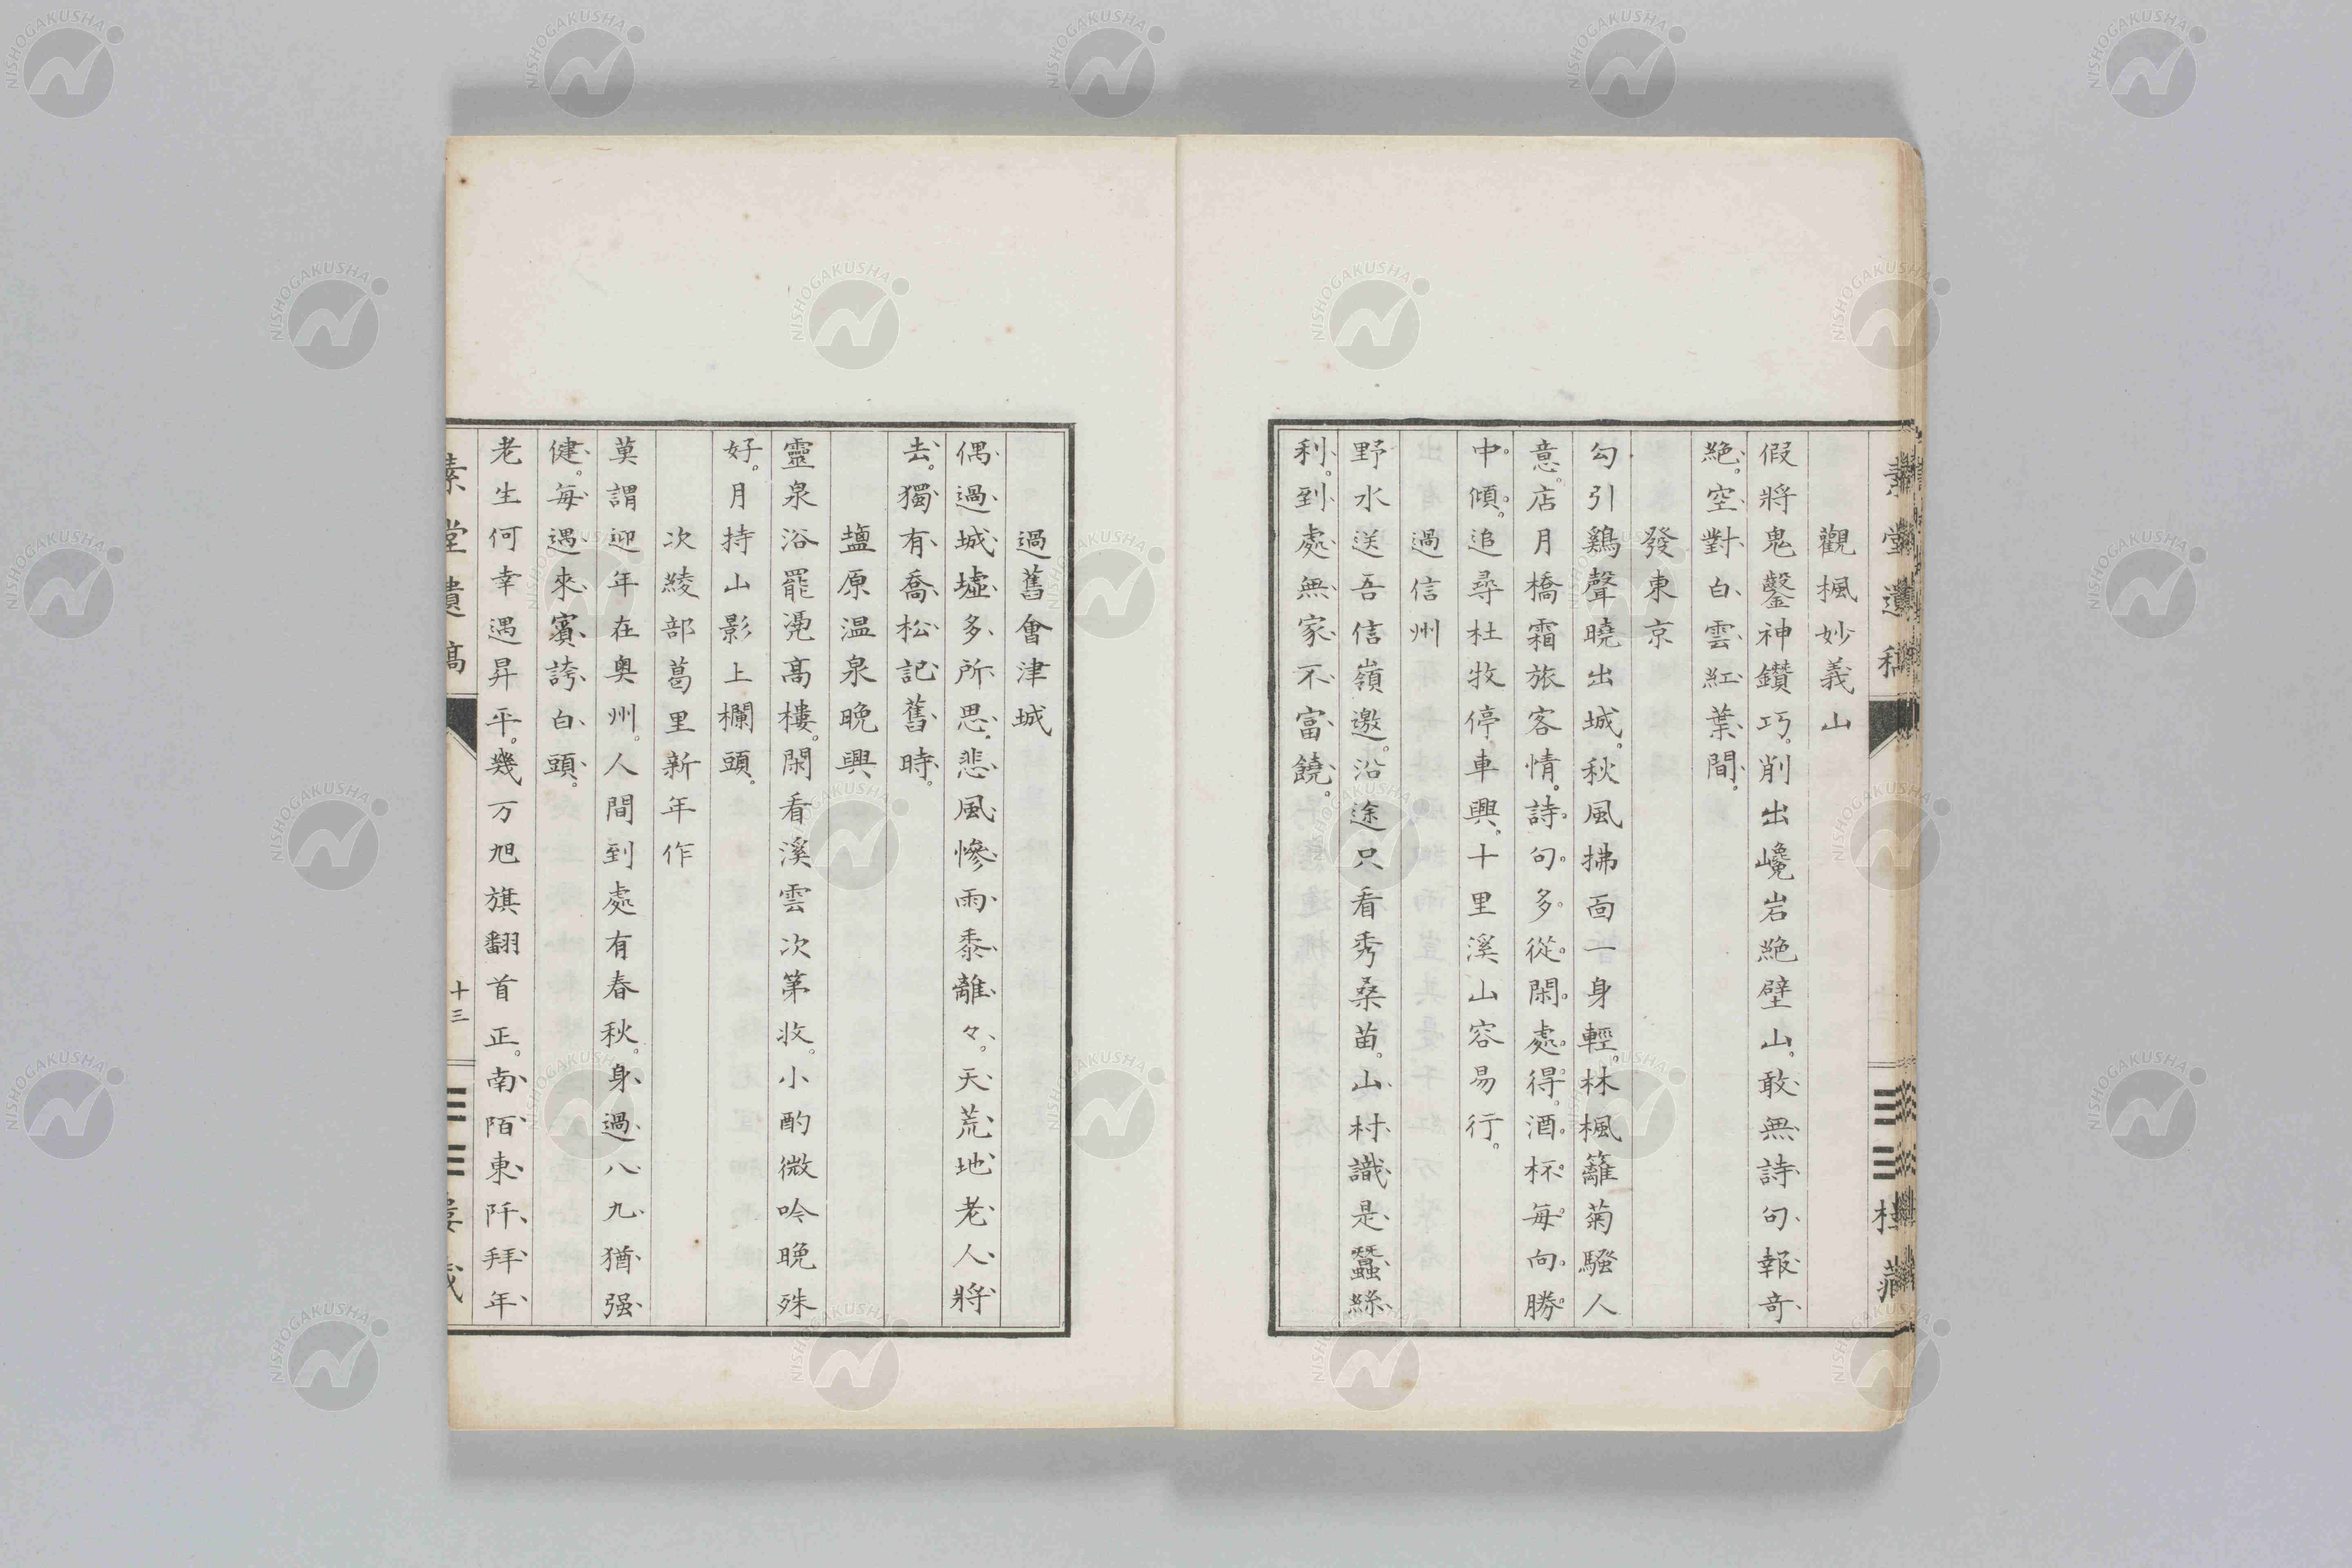 觀楓妙義山
假將鬼鑿神鑽巧。削出巉岩絶壁山。敢無詩句報奇
絶。空對白雲紅葉間。
發東京
勾引鷄聲曉出城。秋風拂面一身輕。林楓籬菊騷人
意。店月橋霜旅客情。詩句多從閑處得。酒杯每向勝
中傾。追尋杜牧停車興。十里溪山容易行。
過信州
野水送吾信嶺邀。沿途只看秀桑苗。山村識是蠶絲
利。到處無家不富饒。
過舊會津城
偶過城墟多所思。悲風慘雨黍離々。天荒地老人將
去。獨有喬松記舊時。
鹽原温泉晩興
靈泉浴罷凭高樓。閑看溪雲次第收。小酌微吟晩殊
好。月持山影上欄頭。
次綾部葛里新年作
莫謂迎年在奥州。人間到處有春秋。身過八九猶强
健。每遇來賓誇白頭。
老生何幸遇昇平。幾万旭旗翻首正。南陌東阡拜年
素堂遺稿
十三
NISHOGAKUSHA